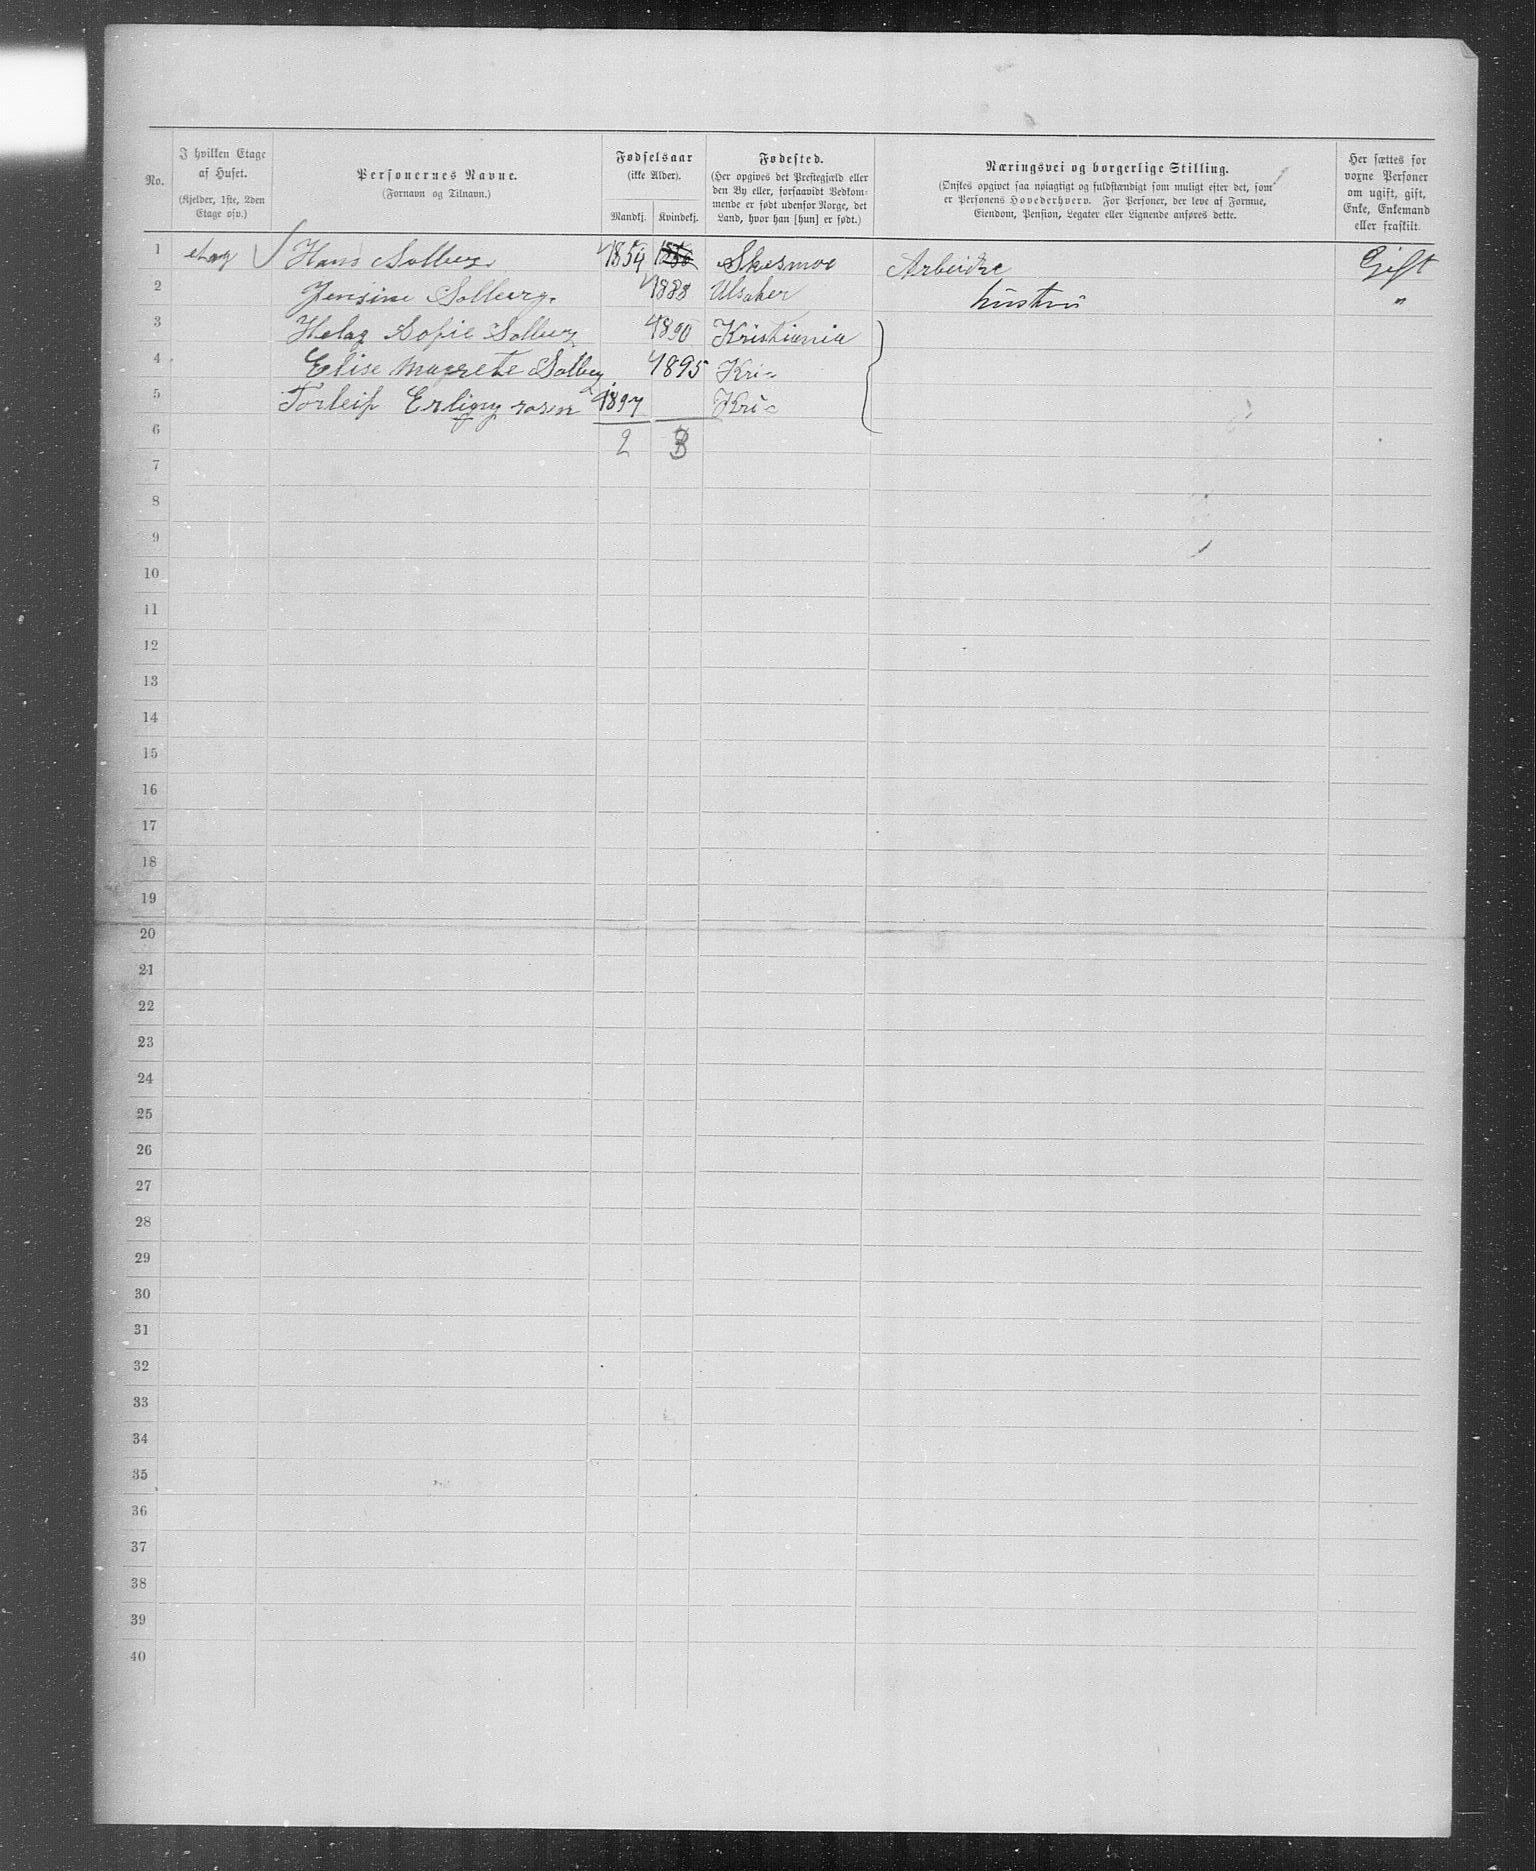 No.
I hvilken Etage af Huset.
(Kjelder, 1ste, 2den Etage osv.)
Personernes Navne.
(Fornavn og Tilnavn.)
Fødselsaar
(ikke Alder).
Mandkj. Kvindekj.
Fødested.
(Her opgives det Prestegjæld eller
den By eller, forsaavidt Vedkom-
mende er født udenfor Norge, det
Land, hvor han [hun] er født.)
Næringsvei og borgerlige Stilling.
(Ønskes opgivet saa nøiagtigt og fuldstændigt som muligt efter det, som
er Personens Hovederhverv. For Personer, der leve af Formue,
Eiendom, Pension, Legater eller Lignende anføres dette.
Her sættes for
voxne Personer
om ugift, gift,
Enke, Enkemand
eller fraskilt.
1 etag Hans Solberg 1854 Skesmoe Arbeidre Gift
2 Jensine Solberg. 1888 Ulsaker hustru "
3 Helag Sofie Solberg 1890 Kristiania
4 Elise Magrete Solberg 1895 Kri-
5 Torleif Erling 1897 Kri-
6 2 3
7
8
9
10
11
12
13
14
15
16
17
18
19
20
21
22
23
24
25
26
27
28
29
30
31
32
33
34
35
36
37
38
39
40